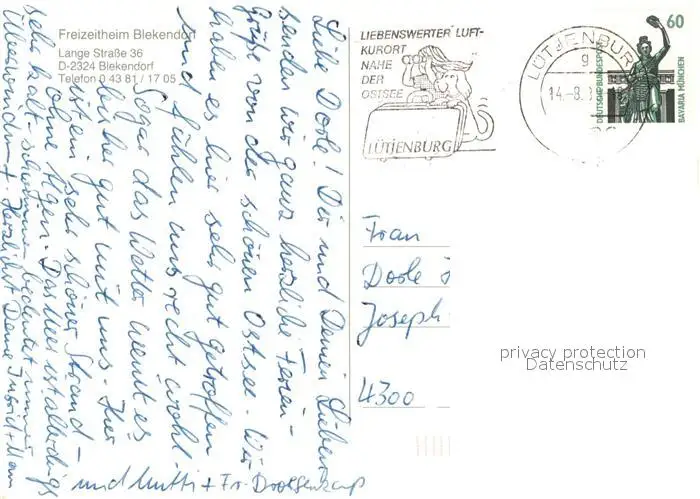 Freizeitheim Blekendorf
Lange Straße 36
D-2324 Blekendorf
Telefon 0 43 81 / 17 05
Liebe Dorle! Dir und Deinen Lieben
senden wir ganz herzliche Ferien-
grüße von der schönen Ostsee. Wir
haben es hier sehr gut getroffen
und fühlen uns recht wohl.
Sogar das Wetter meint es
bisher gut mit uns. Hier
ist ein sehr schöner Strand –
ohne Algen. Das Meer ist allerdings
sehr kalt - schwimmen bedeutet immer
Überwindung. Herzlichst Deine
und Mutti + Fr.
LIEBENSWERTER LUFT-
KURORT
NAHE
DER
OSTSEE
LÜTJENBURG
LÜTJENBURG
g
14.-8.
60
DEUTSCHE BUNDESPOST
BAVARIA MÜNCHEN
Frau
Dorle
Joseph
4300
privacy protection
Datenschutz